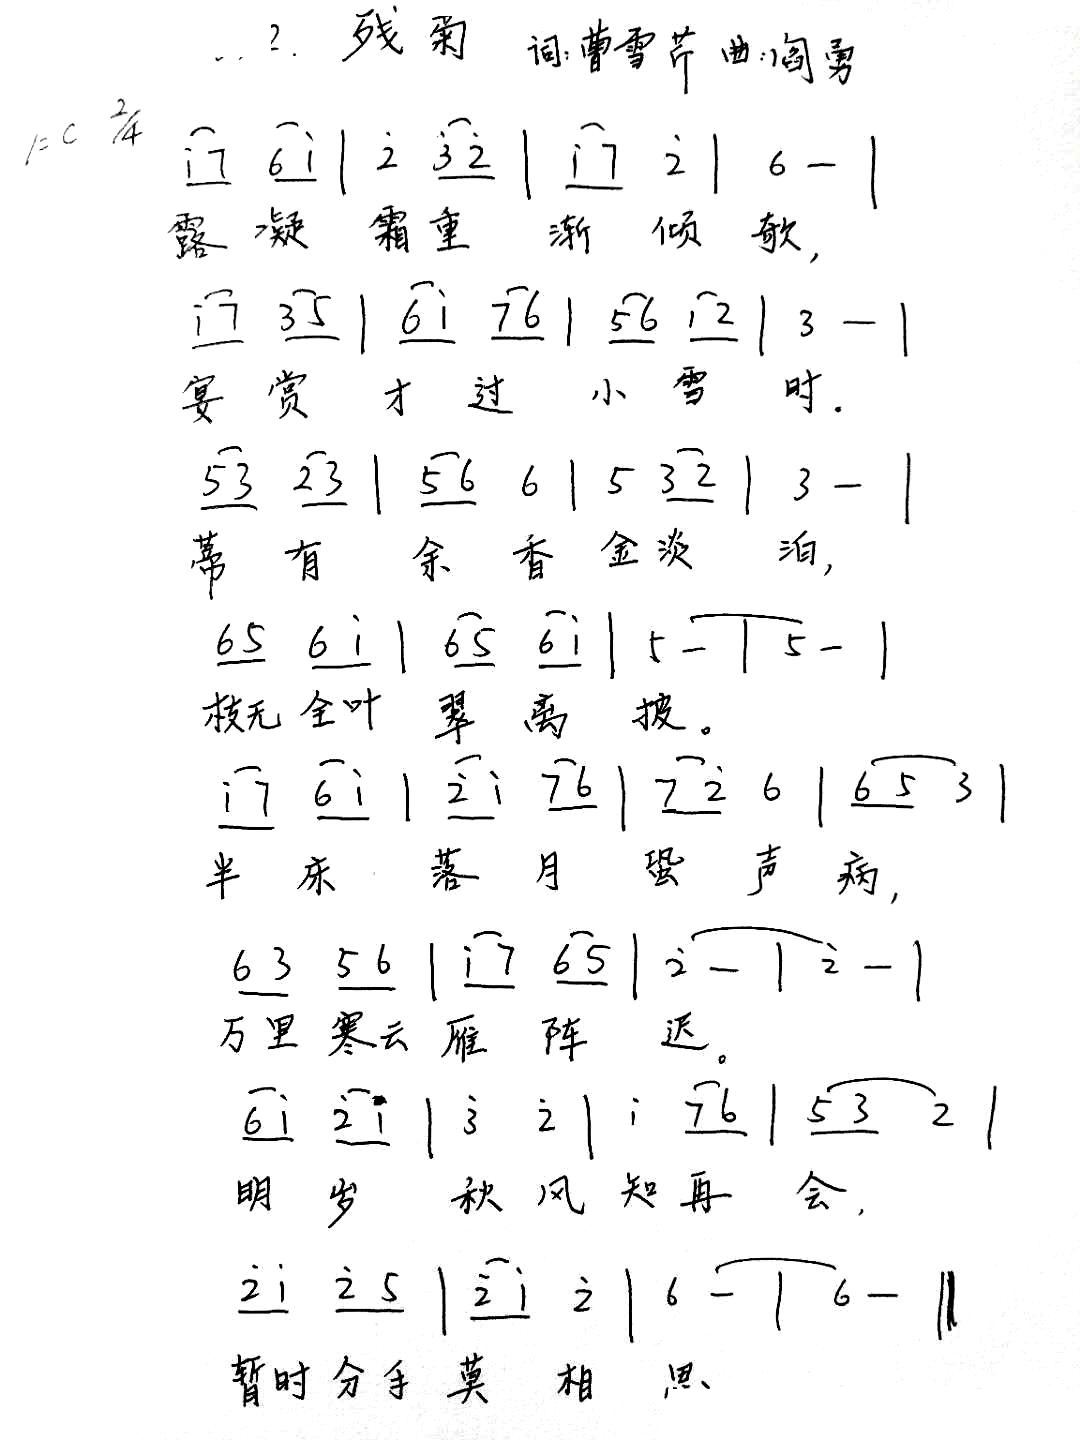 2. 残菊 词:曹雪芹 曲:阎勇
1=C 2/4
i7 6i | 2̇ 3̇2̇ | i7 2̇ | 6 — |
露凝霜重渐倾欹,
i7 35 | 6i 76 | 56 i2 | 3 — |
宴赏才过小雪时.
53 23 | 56 6 | 5 32 | 3 — |
蒂有余香金淡泊,
65 6i | 65 6i | 5 — | 5 — |
枝无全叶翠离披。
i7 6i | 2̇i 76 | 72̇ 6 | 65 3 |
半床落月蛩声病,
63 56 | i7 65 | 2̇ — | 2̇ — |
万里寒云雁阵迟。
6i 2̇i | 3̇ 2̇ | i 76 | 53 2 |
明岁秋风知再会,
2̇i 2̇5 | 2̇i 2̇ | 6 — | 6 — ‖
暂时分手莫相思、